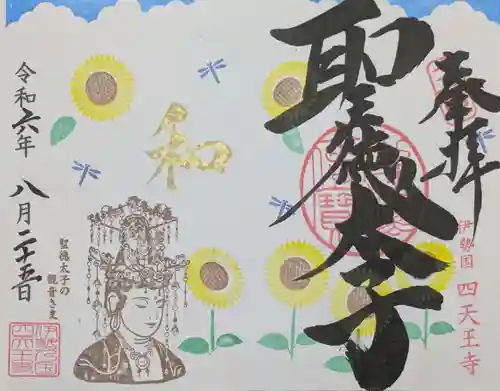 奉拝
聖徳太子
伊勢国 四天王寺
和
聖徳太子の
観音さま
令和六年 八月二十五日